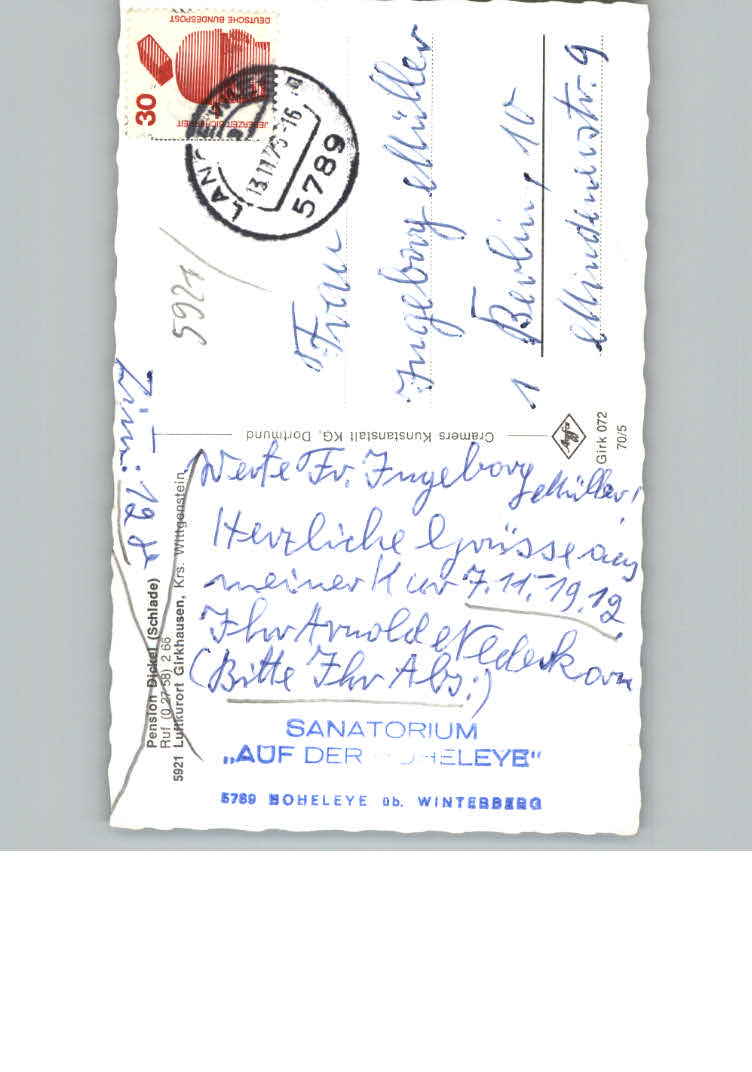 DEUTSCHE BUNDESPOST
30
JEDERZEIT SICHERHEIT
13.11.72-16
5789
5921
Frau
Ingeborg Müller
1 Berlin, 10
Mindenerstr. 9
Cramers Kunstanstalt KG, Dortmund
Girk 072
70/5
Zim: 128
Pension Dickel (Schlade)
Ruf (0 27 58) 2 66
5921 Luftkurort Girkhausen, Krs. Wittgenstein
Werte Fr. Ingeborg
Müller!
Herzliche Grüsse aus
meiner Kur 7.11.-19.12.
Ihr Arnold
(Bitte Ihr Abs:)
SANATORIUM
„AUF DER HOHELEYE“
5789 HOHELEYE üb. WINTERBERG